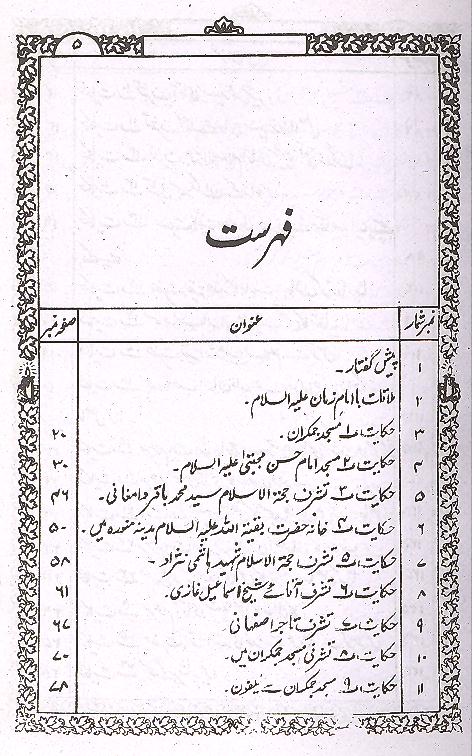 ۵
فہرست
نمبر شمار عنوان صفحہ نمبر
۱ پیش گفتار۔
۲ ملاقات با امام زمان علیہ السلام۔
۳ حکایت ۱ مسجد جمکران۔ ۲۰
۴ حکایت ۲ مسجد امام حسن مجتبیٰ علیہ السلام۔ ۳۰
۵ حکایت ۳ تشرف حجۃ الاسلام سید محمد باقر دامغانی۔ ۴۶
۶ حکایت ۴ خانہ حضرت بقیۃ اللہ علیہ السلام مدینہ منورہ میں۔ ۵۰
۷ حکایت ۵ تشرف حجۃ الاسلام شہید ہاشمی نژاد۔ ۵۸
۸ حکایت ۶ تشرف آقائے شیخ اسماعیل غازی۔ ۶۱
۹ حکایت ۷ تشرف تاجر اصفہانی ۶۷
۱۰ حکایت ۸ تشرفی مسجد جمکران میں۔ ۷۰
۱۱ حکایت ۹ مسجد جمکران سے ٹیلفون۔ ۷۸